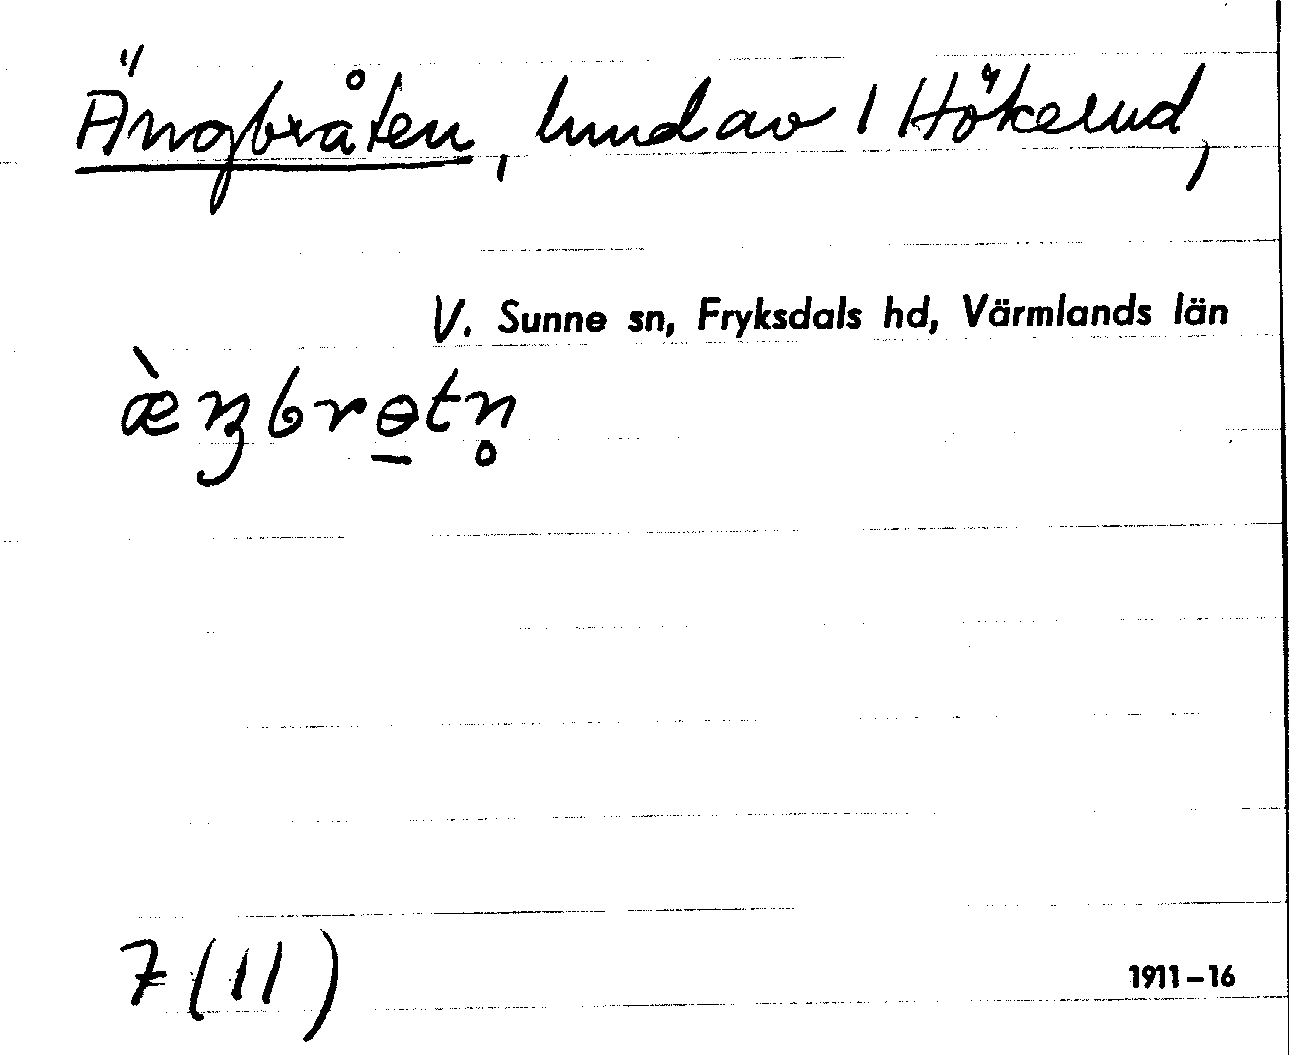 Ängbråten, lund av 1 Hökerud,
V. Sunne sn, Fryksdals hd, Värmlands län
æ̀ŋbrɵ̠tn̥
7 (11)
1911-16